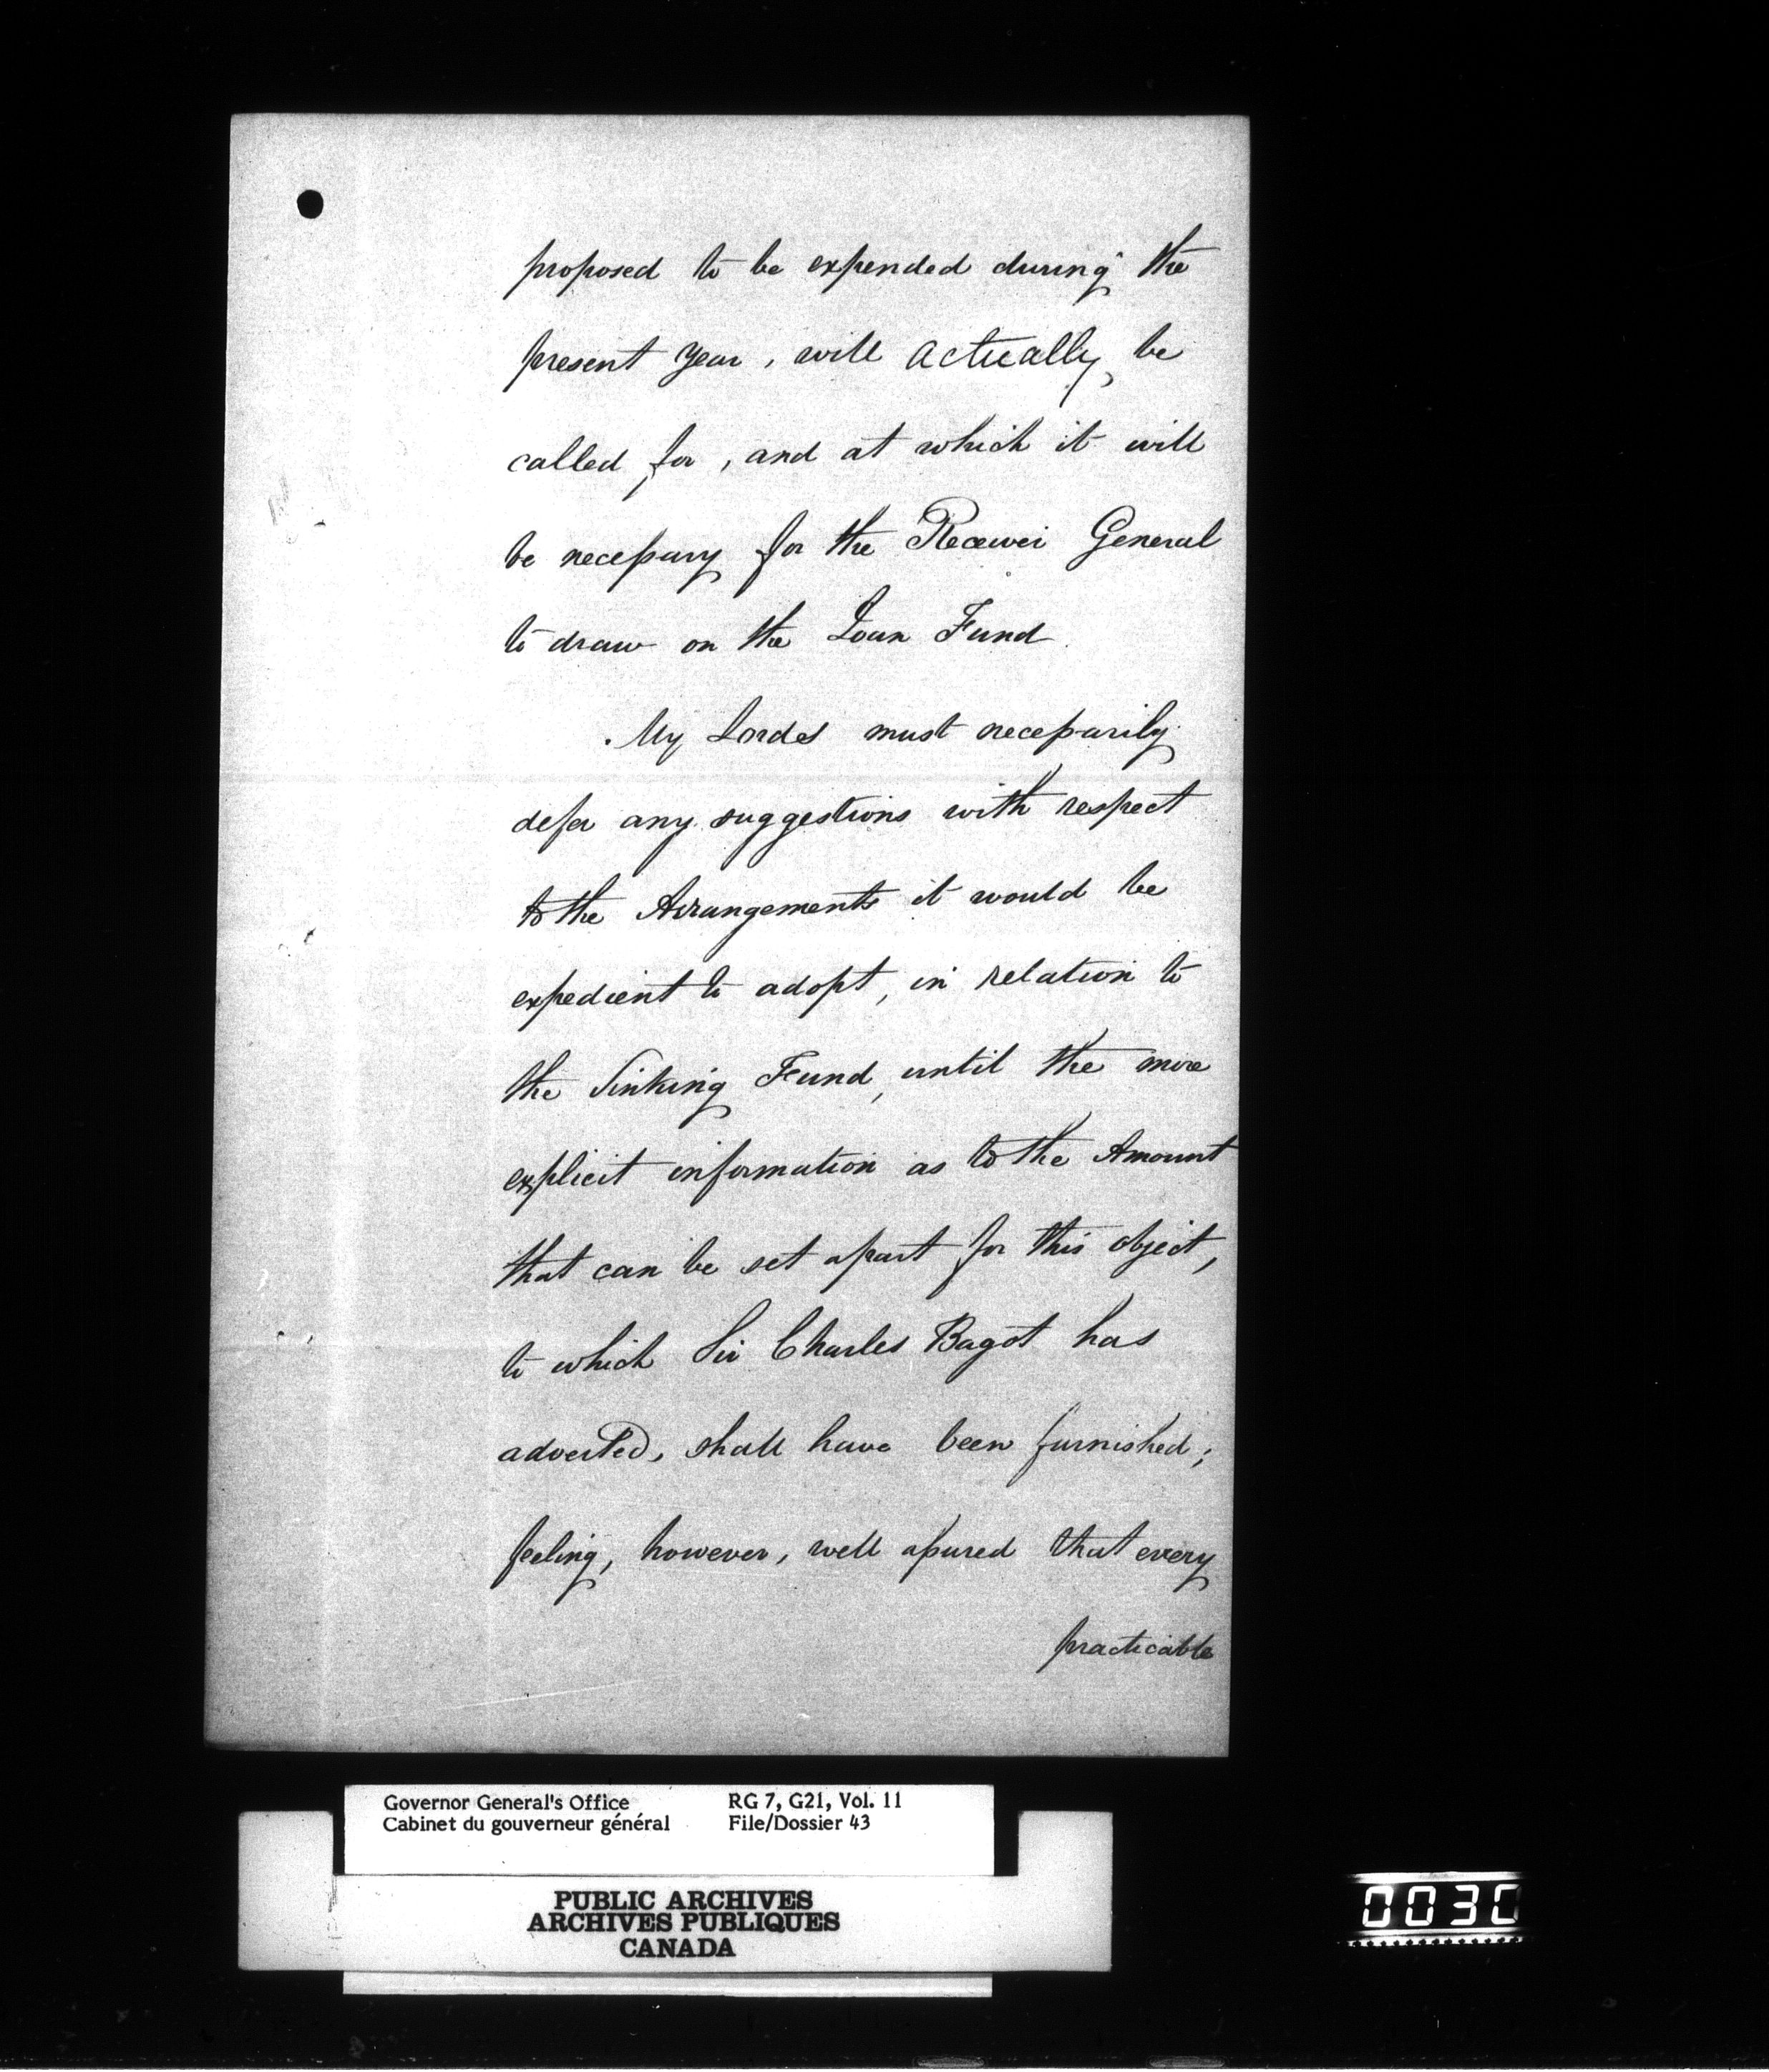 proposed to be expended during the
present year, will actually be
called for, and at which it will
be necessary for the Receiver General
to draw on the Loan Fund.
My Lords must necessarily
defer any suggestions with respect
to the Arrangements it would be
expedient to adopt, in relation to
the Sinking Fund, until the more
explicit information as to the Amount
that can be set apart for this object,
to which Sir Charles Bagot has
adverted, shall have been furnished;
feeling, however, well assured that every
practicable
Governor General's Office RG 7, G21, Vol. 11
Cabinet du gouverneur général File/Dossier 43
PUBLIC ARCHIVES
ARCHIVES PUBLIQUES
CANADA
0030